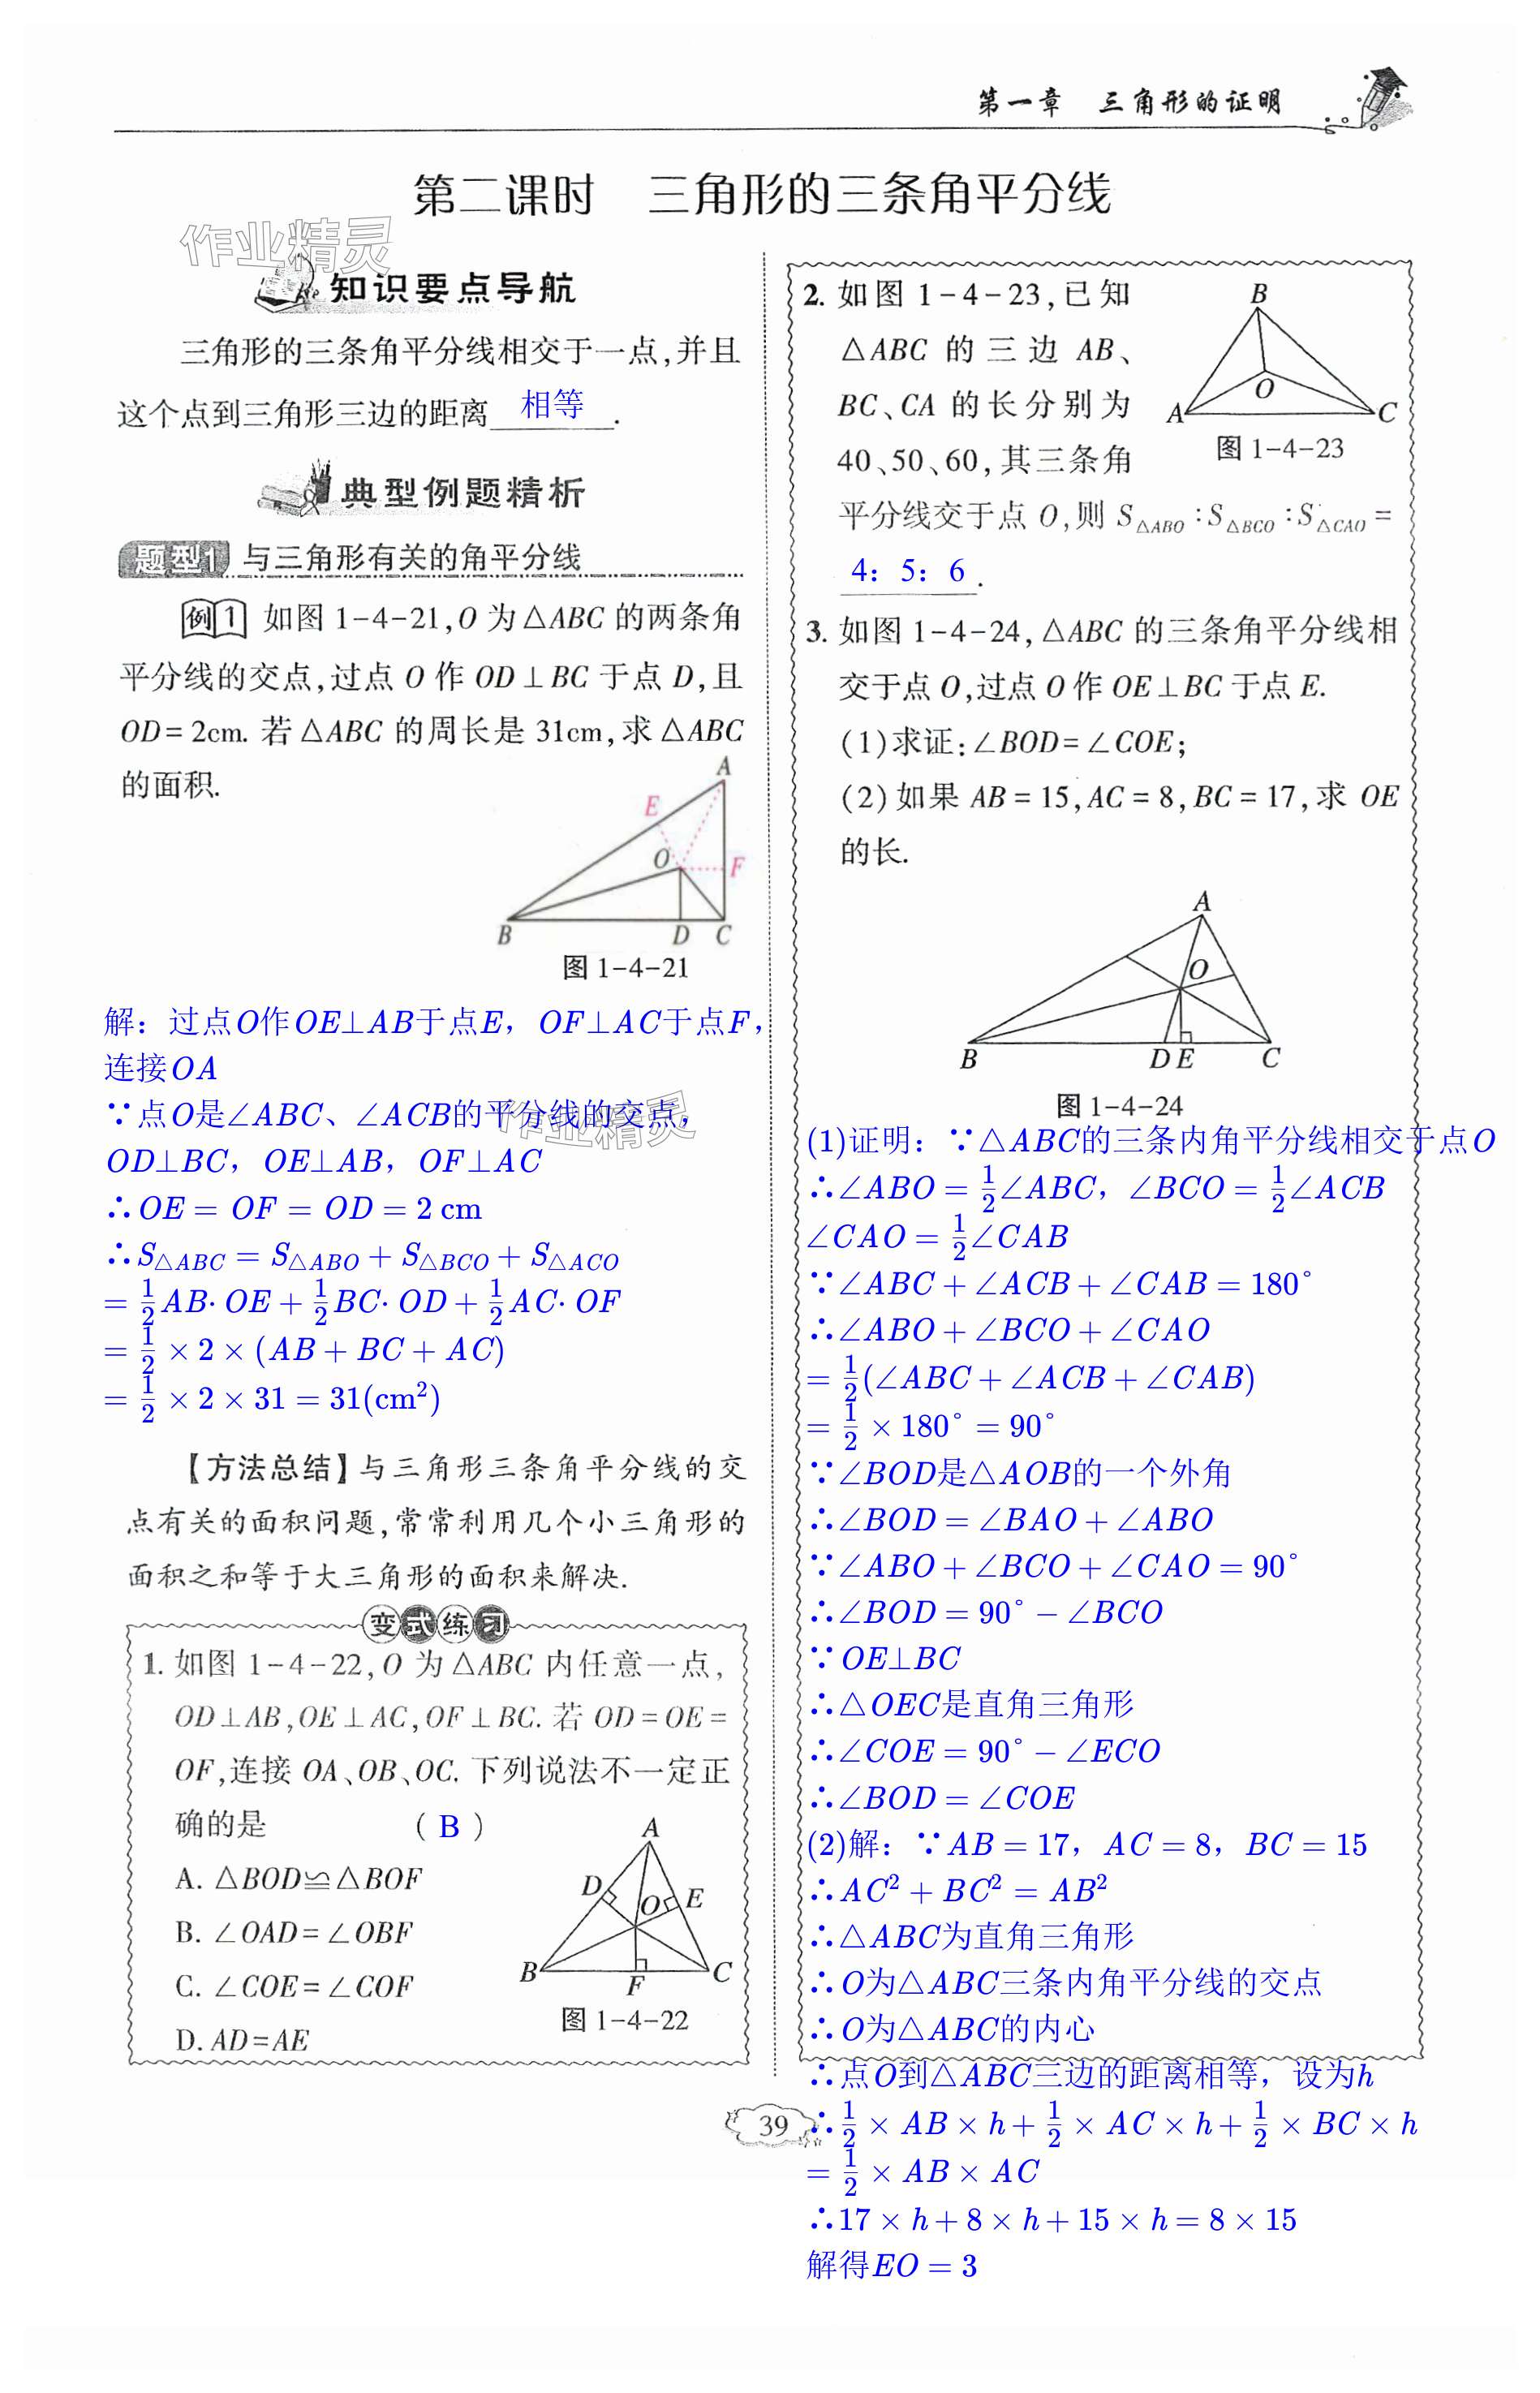 第一章 三角形的证明
第二课时 三角形的三条角平分线
作业精灵
知识要点导航
三角形的三条角平分线相交于一点,并且
这个点到三角形三边的距离 相等 .
典型例题精析
题型1 与三角形有关的角平分线
例1 如图1-4-21,O为△ABC的两条角
平分线的交点,过点O作OD⊥BC于点D,且
OD=2cm. 若△ABC的周长是31cm,求△ABC
的面积.
A
E
O
F
B D C
图1-4-21
解：过点O作OE⊥AB于点E，OF⊥AC于点F，
连接OA
∵点O是∠ABC、∠ACB的平分线的交点，
作业精灵
OD⊥BC，OE⊥AB，OF⊥AC
∴OE=OF=OD=2 cm
∴S△ABC=S△ABO+S△BCO+S△ACO
=1/2AB·OE+1/2BC·OD+1/2AC·OF
=1/2×2×(AB+BC+AC)
=1/2×2×31=31(cm²)
【方法总结】与三角形三条角平分线的交
点有关的面积问题,常常利用几个小三角形的
面积之和等于大三角形的面积来解决.
变式练习
1. 如图1-4-22,O为△ABC内任意一点,
OD⊥AB,OE⊥AC,OF⊥BC. 若OD=OE=
OF,连接OA、OB、OC. 下列说法不一定正
确的是 ( B )
A. △BOD≌△BOF
B. ∠OAD=∠OBF
C. ∠COE=∠COF
D. AD=AE
A
D
O E
B F C
图1-4-22
2. 如图1-4-23,已知
△ABC的三边AB、
BC、CA的长分别为
40、50、60,其三条角
平分线交于点O,则S△ABO∶S△BCO∶S△CAO=
4：5：6 .
B
O
A C
图1-4-23
3. 如图1-4-24,△ABC的三条角平分线相
交于点O,过点O作OE⊥BC于点E.
(1)求证:∠BOD=∠COE;
(2)如果AB=15,AC=8,BC=17,求OE
的长.
A
O
B D E C
图1-4-24
(1)证明：∵△ABC的三条内角平分线相交于点O
∴∠ABO=1/2∠ABC，∠BCO=1/2∠ACB
∠CAO=1/2∠CAB
∵∠ABC+∠ACB+∠CAB=180°
∴∠ABO+∠BCO+∠CAO
=1/2(∠ABC+∠ACB+∠CAB)
=1/2×180°=90°
∵∠BOD是△AOB的一个外角
∴∠BOD=∠BAO+∠ABO
∵∠ABO+∠BCO+∠CAO=90°
∴∠BOD=90°-∠BCO
∵OE⊥BC
∴△OEC是直角三角形
∴∠COE=90°-∠ECO
∴∠BOD=∠COE
(2)解：∵AB=17，AC=8，BC=15
∴AC²+BC²=AB²
∴△ABC为直角三角形
∴O为△ABC三条内角平分线的交点
∴O为△ABC的内心
∴点O到△ABC三边的距离相等，设为h
∴1/2×AB×h+1/2×AC×h+1/2×BC×h
=1/2×AB×AC
∴17×h+8×h+15×h=8×15
解得EO=3
39